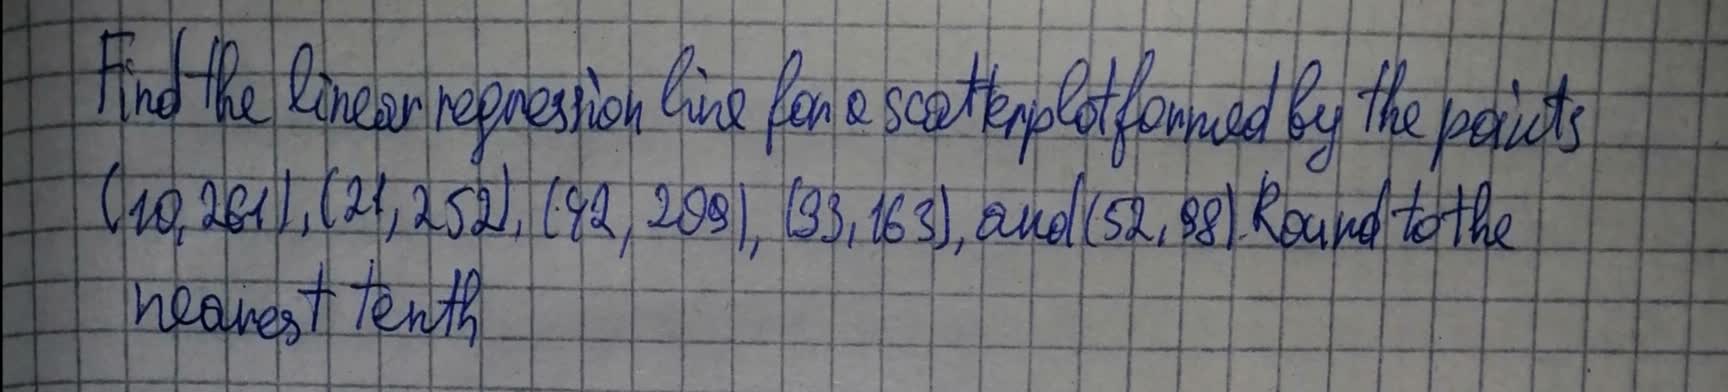 Find the linear regression line for a scatterplot formed by the points
(10, 261), (21, 252), (42, 209), (33, 163), and (52, 98). Round to the
nearest tenth